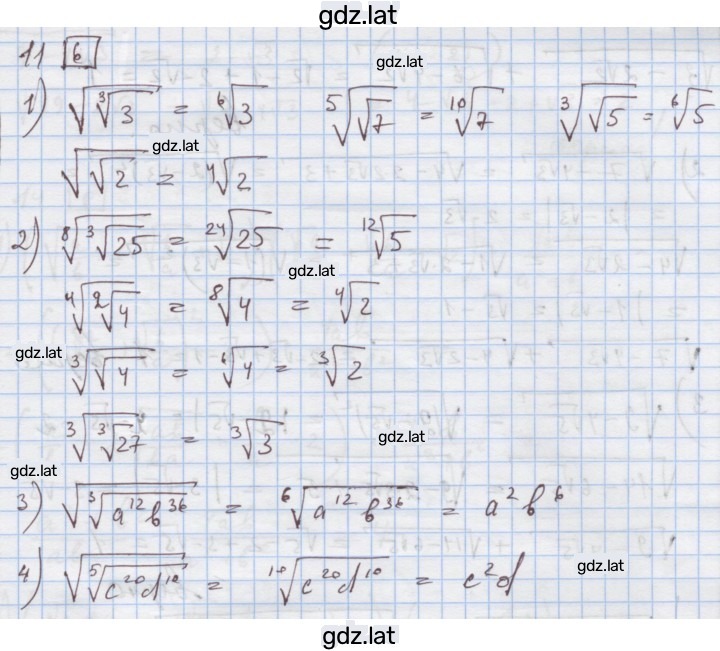 gdz.lat
11 6
gdz.lat
1) √(∛3) = ⁶√3 ⁵√(√7) = ¹⁰√7 ∛(√5) = ⁶√5
gdz.lat
√(√2) = ⁴√2
2) ⁸√(∛25) = ²⁴√25 = ¹²√5
gdz.lat
⁴√(²√4) = ⁸√4 = ⁴√2
gdz.lat
∛(√4) = ⁶√4 = ∛2
∛(∛27) = ∛3
gdz.lat
gdz.lat
3) √(∛(a¹²b³⁶)) = ⁶√(a¹²b³⁶) = a²b⁶
4) √(⁵√(c²⁰d¹⁰)) = ¹⁰√(c²⁰d¹⁰) = c²d
gdz.lat
gdz.lat